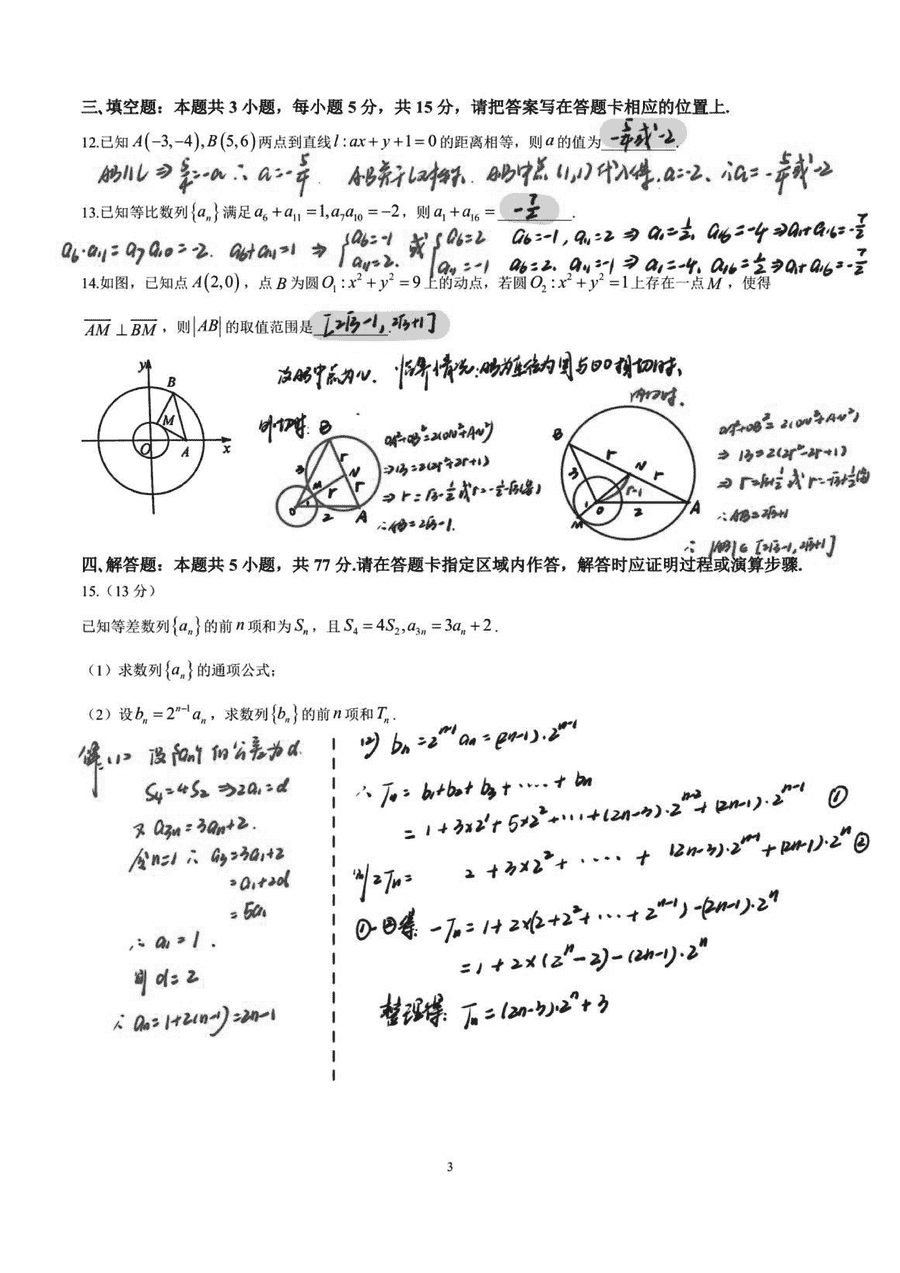 三、填空题：本题共 3 小题，每小题 5 分，共 15 分，请把答案写在答题卡相应的位置上.
12.已知 A(−3,−4), B(5,6) 两点到直线 l : ax + y +1 = 0 的距离相等，则 a 的值为 -5/4或-2.
AB∥l ⇒ 5/4=-a ∴ a=-5/4. AB关于l对称. AB中点(1,1)代入得, a=-2. ∴a=-5/4或-2
13.已知等比数列{aₙ}满足 a₆ + a₁₁ = 1, a₇a₁₀ = −2，则 a₁ + a₁₆ = -7/2.
a₆·a₁₁=a₇a₁₀=-2. a₆+a₁₁=1 ⇒ {a₆=-1 a₁₁=2. 或 {a₆=2 a₁₁=-1 a₆=-1, a₁₁=2 ⇒ a₁=1/2, a₁₆=-4 ⇒ a₁+a₁₆=-7/2
a₆=2. a₁₁=-1 ⇒ a₁=-4, a₁₆=1/2 ⇒ a₁+a₁₆=-7/2
14.如图，已知点 A(2,0)，点 B 为圆 O₁ : x² + y² = 9 上的动点，若圆 O₂ : x² + y² = 1 上存在一点 M，使得
AM ⊥ BM，则|AB|的取值范围是 [2√3-1, 2√3+1]
设AB中点为N. 临界情况:AB为直径为圆与⊙O相切时,
y
B
M
O
A
x
外切时:
B
3
M
N
r
r
r
1
O
2
A
OA²+OB²=2(ON²+AN²)
⇒13=2(2r²+2r+1)
⇒ r=√3-1/2或r=-1/2-√3(舍)
∴AB=2√3-1.
内切时.
B
r
N
3
r-1
r
O
2
A
M
OA²+OB²=2(ON²+AN²)
⇒ 13=2(2r²-2r+1)
⇒ r=√3+1/2或r=-√3+1/2(舍)
∴AB=2√3+1
∴ |AB|∈[2√3-1,2√3+1]
四、解答题：本题共 5 小题，共 77 分.请在答题卡指定区域内作答，解答时应证明过程或演算步骤.
15.（13 分）
已知等差数列{aₙ}的前 n 项和为 Sₙ，且 S₄ = 4S₂, a₃ₙ = 3aₙ + 2.
（1）求数列{aₙ}的通项公式；
（2）设 bₙ = 2ⁿ⁻¹aₙ，求数列{bₙ}的前 n 项和 Tₙ.
解:(1) 设{aₙ}的公差为d.
S₄=4S₂ ⇒2a₁=d
又a₃ₙ=3aₙ+2.
令n=1 ∴ a₃=3a₁+2
=a₁+2d
=5a₁
∴ a₁=1.
则 d=2
∴ aₙ=1+2(n-1)=2n-1
(2) bₙ=2ⁿ⁻¹aₙ=(2n-1)·2ⁿ⁻¹
∴ Tₙ= b₁+b₂+b₃+····+bₙ
=1+3×2¹+5×2²+···+(2n-3)·2ⁿ⁻²+(2n-1)·2ⁿ⁻¹ ①
则2Tₙ= 2+3×2²+····+(2n-3)·2ⁿ⁻¹+(2n-1)·2ⁿ ②
①-②得: -Tₙ=1+2×(2+2²+···+2ⁿ⁻¹)-(2n-1)·2ⁿ
=1+2×(2ⁿ-2)-(2n-1)·2ⁿ
整理得: Tₙ=(2n-3)·2ⁿ+3
3